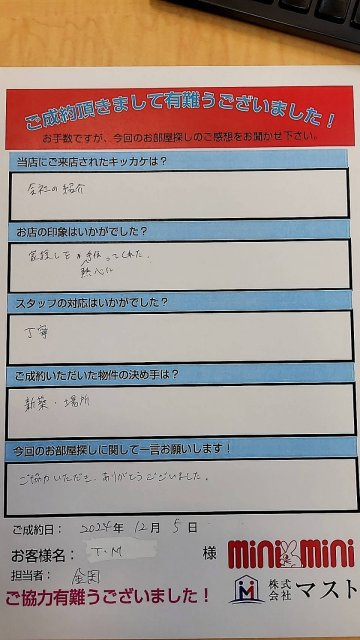 ご成約頂きまして有難うございました！
お手数ですが、今回のお部屋探しのご感想をお聞かせ下さい。
当店にご来店されたキッカケは？
会社の紹介
お店の印象はいかがでした？
家探しを手伝ってくれた。
熱心に
スタッフの対応はいかがでした？
丁寧
ご成約いただいた物件の決め手は？
新築・場所
今回のお部屋探しに関して一言お願いします！
ご協力いただき、ありがとうございました。
ご成約日： 2024年 12月 5日
お客様名： T・M 様
mini mini
担当者：
株式会社 マスト
ご協力有難うございました！